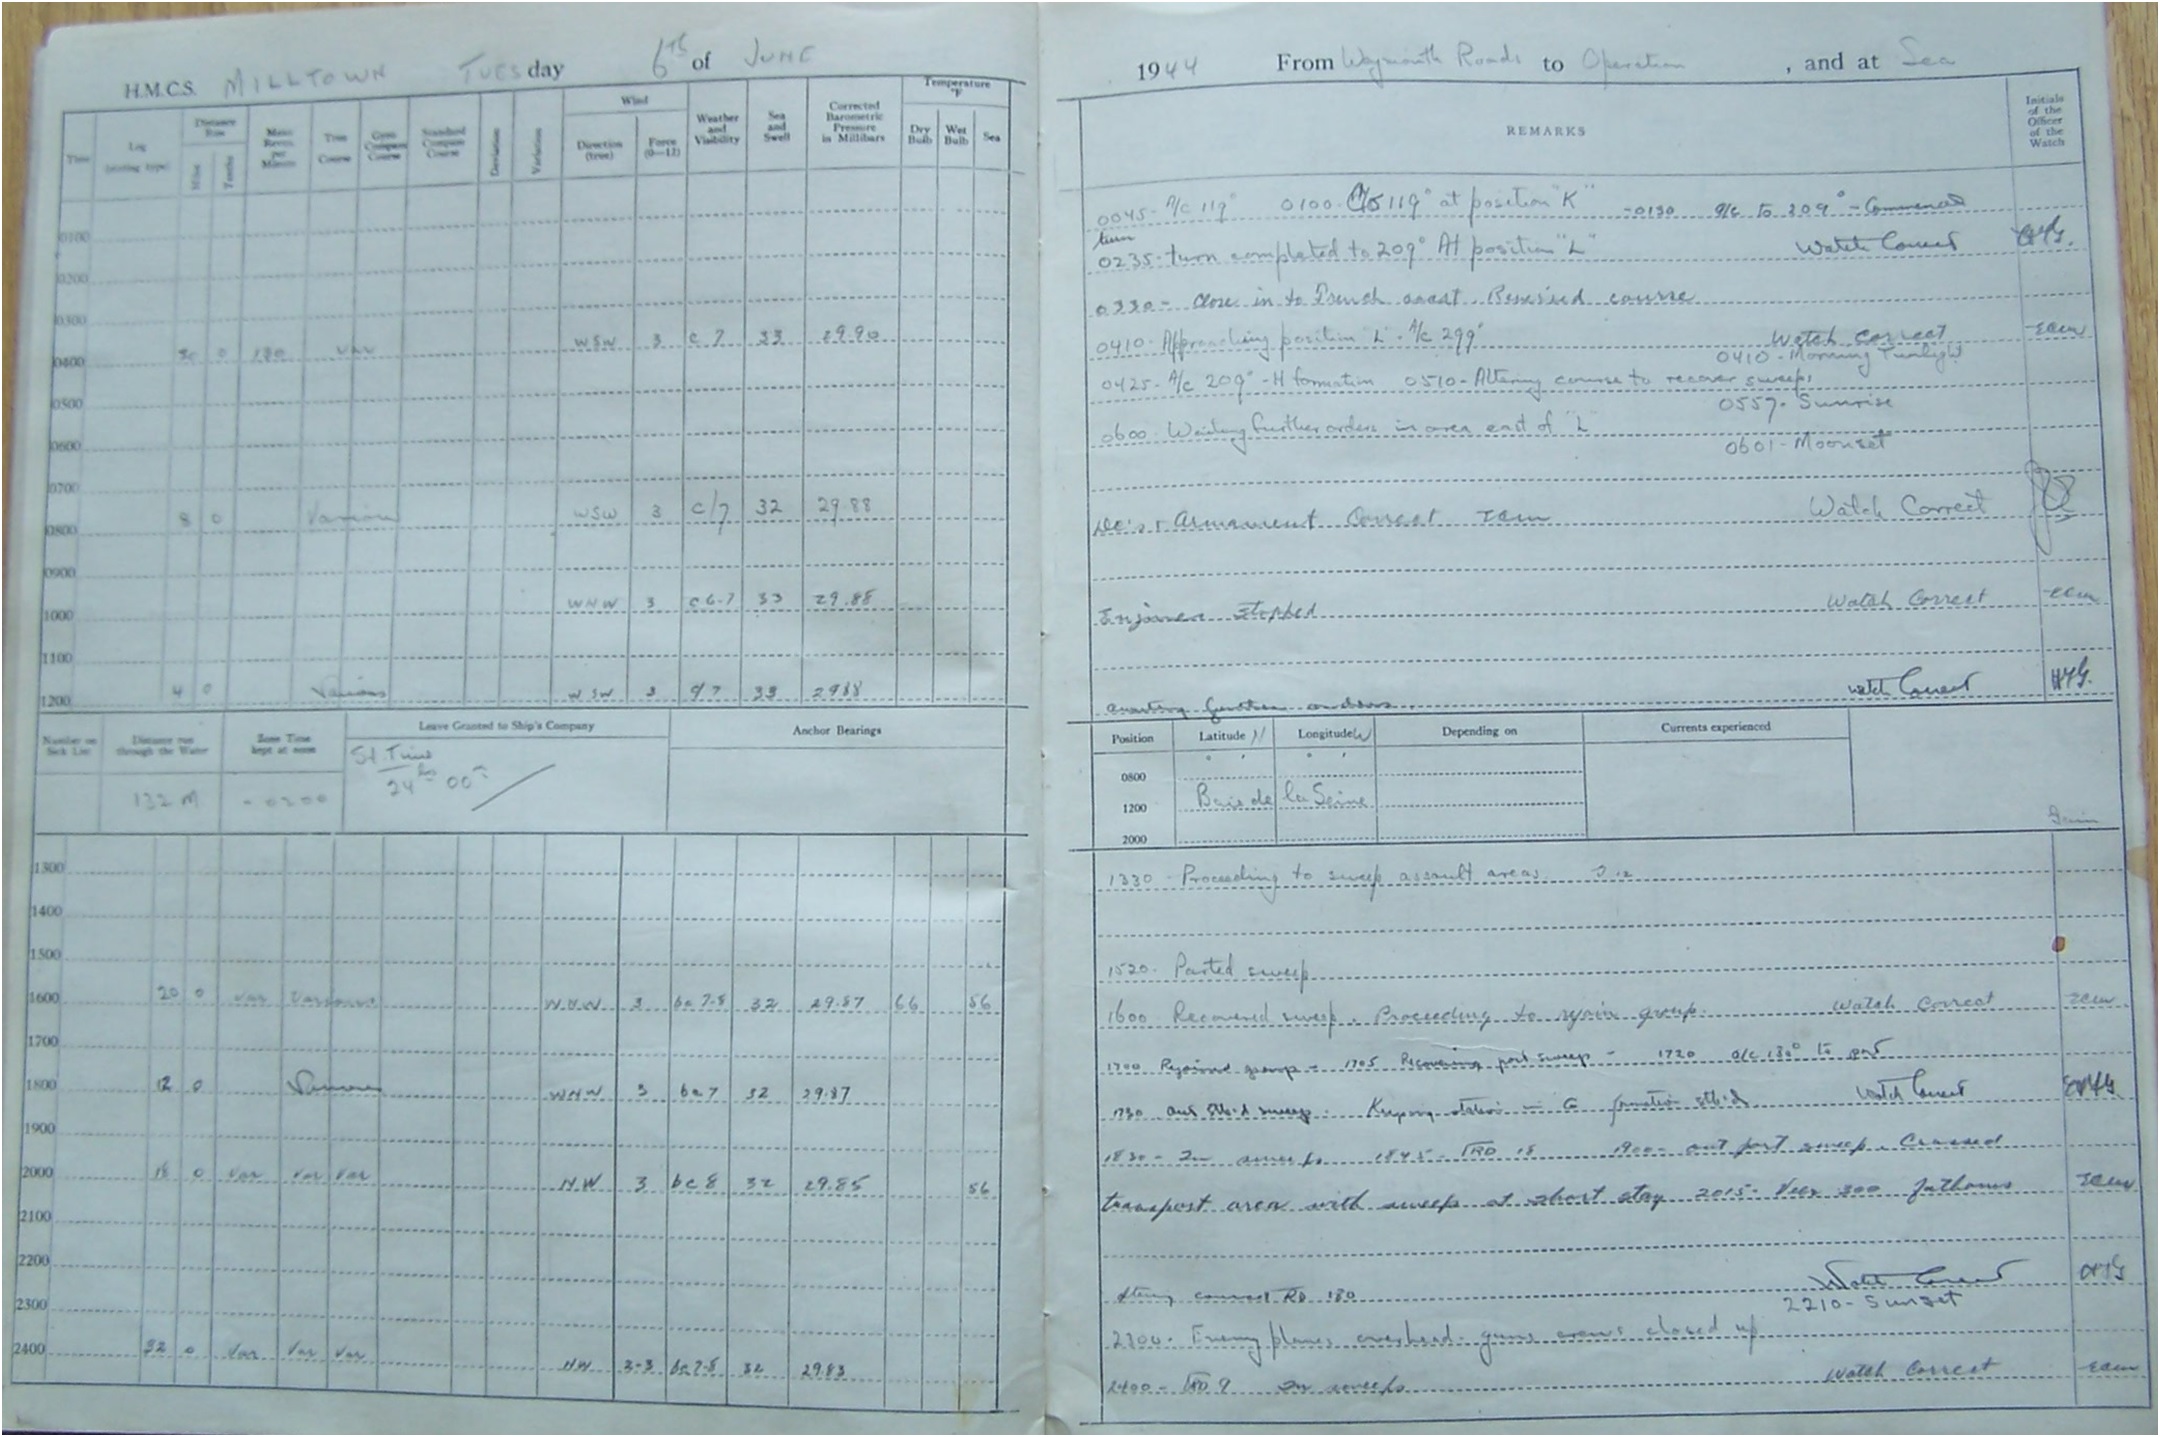 H.M.C.S. MILLTOWN TUESday 6TH of JUNE
Time
Log
(stating type)
Distance Run
Miles
Tenths
Mean Revns. per Minute
True Course
Gyro Compass Course
Standard Compass Course
Deviation
Variation
Wind
Direction (true)
Force (0—12)
Weather and Visibility
Sea and Swell
Corrected Barometric Pressure in Millibars
Temperature °F
Dry Bulb
Wet Bulb
Sea
0100
0200
0300
0400 0 130 var WSW 3 c 7 33 29.90
0500
0600
0700
0800 8 0 Various WSW 3 c/7 32 29.88
0900
1000 WNW 3 c 6-7 33 29.88
1100
1200 4 0 Various WSW 3 c/7 33 2988
Number on Sick List
Distance run through the Water
Zone Time kept at noon
Leave Granted to Ship's Company
Anchor Bearings
132 M
- 0200
St. Time
24 hrs 00 m
1300
1400
1500
1600 20 0 var Various WNW 3 bc 7-8 32 29.87 66 56
1700
1800 12 0 Various WNW 3 bc 7 32 29.87
1900
2000 18 0 var var var NW 3 bc 8 32 29.85 56
2100
2200
2300
2400 32 0 var var var NW 2-3 bc 7-8 32 29.83
1944 From Weymouth Roads to Operation , and at Sea
REMARKS
Initials of the Officer of the Watch
0045- A/c 119° 0100- 119° at position "K" -0130 a/c to 209° - Commenced
turn
0235- turn completed to 209° At position "L" Watch Correct
0330- Close in to French coast. Reversed course
0410- Approaching position "L" - A/c 299° Watch Correct
0410- Morning Twilight
0425- A/c 209° - H formation 0510- Altering course to recover sweeps
0557- Sunrise
0600- Waiting further orders in area east of "L"
0601- Moonset
Armament Correct Watch Correct
Engines stopped Watch Correct
awaiting further orders. Watch Correct HYG.
Position
Latitude N
Longitude W
Depending on
Currents experienced
0800
1200 Baie de la Seine
2000
1330- Proceeding to sweep assault areas
1520- Parted sweep
1600 Recovered sweep. Proceeding to rejoin group. Watch Correct
1700 Rejoined group - 1705 Recovering port sweep - 1720 a/c 130° to port
1730 out Stb'd sweep. Keeping station in G formation stb'd Watch Correct
1830- In sweeps 1845- 18 1900- out port sweep. Crossed
transport area with sweep at short stay 2015- Veer 300 fathoms
courses 180 Watch Correct
2210- Sunset
2300- Enemy planes overhead- guns crews closed up
2400- 9 In sweeps Watch Correct